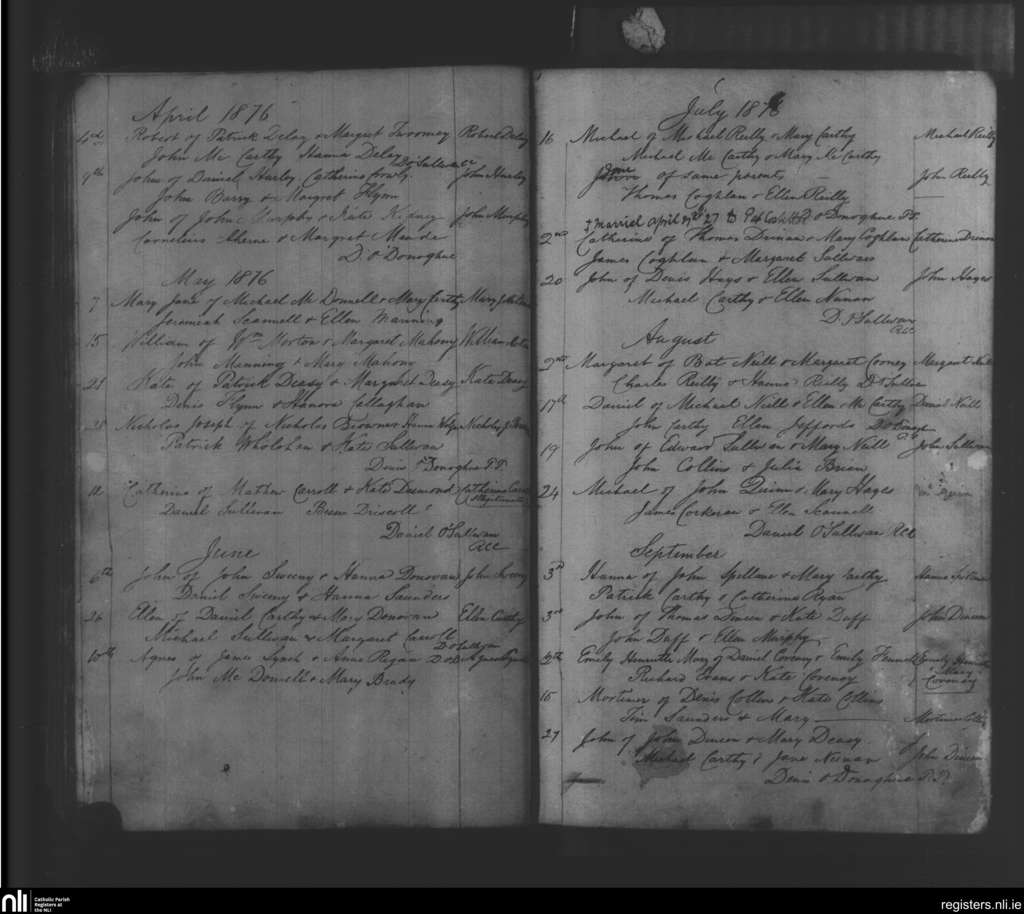 April 1876
Robert of Patrick Delay & Margret Twoomey Robert Delay
John Mc Carthy Hanna Delay D O'Sullivan
9th John of Daniel Hurley Catherine John Hurley
John Barry & Margret Flynn
John of John Murphy & Kate John Murphy
Cornelius Aherne & Margret Meade
D. O'Donoghue
May 1876
7 Mary Jane of Michael Mc Donnell & Mary Carthy Mary Jane
Jeremiah Scannell & Ellen Manning
15 William of Wm Morton & Margaret Mahony William
John Manning & Mary Mahony
21 Kate of Patrick Deasy & Margaret Deasy Kate Deasy
Denis Flynn & Hanora Callaghan
28 Nicholas Joseph of Nicholas & Nicholas J
Patrick Wholohan & Kate Sullivan
Denis O'Donoghue P.P.
Catherine of Mathew Carroll & Kate Desmond Catherine
Daniel Sullivan Driscoll
Daniel O'Sullivan
RCC
June
6th John of John Sweeny & Hanna Donovan John Sweeny
Daniel Sweeny & Hanna Saunders
26 Ellen of Daniel Carthy & Mary Donovan Ellen Carthy
Michael Sullivan & Margaret
10th Agnes of James Lynch & Anne Regan Agnes
John Mc Donnell & Mary Brady
July 1876
16 Michael of Michael Reilly & Mary Carthy Michael Reilly
Michael Mc Carthy & Mary Mc Carthy
John of same parents John Reilly
Thomas Coghlan & Ellen Reilly
Married April 27 to O'Donoghue P.P.
2nd Catherine of Thomas Drinan & Mary Coghlan Catherine Drinan
James Coghlan & Margaret Sullivan
20 John of Denis Hays & Ellen Sullivan John Hayes
Michael Carthy & Ellen Nunan
D. O'Sullivan
RCC
August
2nd Margaret of Bat Neill & Margaret Cooney Margaret
Charles Reilly & Hanna Reilly D O'Sullivan
17th Daniel of Michael Neill & Ellen Mc Carthy Daniel Neill
John Carthy Ellen Jeffords
19 John of Edward Sullivan & Mary Neill John Sullivan
John Collins & Julia Brien
24 Michael of John Quinn & Mary Hayes
James Corkoran & Ellen Scannell
Daniel O'Sullivan RCC
September
3d Hanna of John Spellane & Mary Carthy Hanna
Patrick Carthy & Catherine Ryan
3rd John of Thomas Dineen & Kate Duff John Dineen
John Duff & Ellen Murphy
Emily Henrietta Mary of Daniel Coveney & Emily Emily
Richard Evans & Kate Coveney Mary Coveney
15 Mortimer of Denis Collins & Kate Collins
Tim Saunders & Mary Mortimer Collins
27 John of John Dineen & Mary Deasy
Michael Carthy & Jane Neenan John Dineen
Denis O'Donoghue P.P.
nli Catholic Parish
Registers at
the NLI
registers.nli.ie